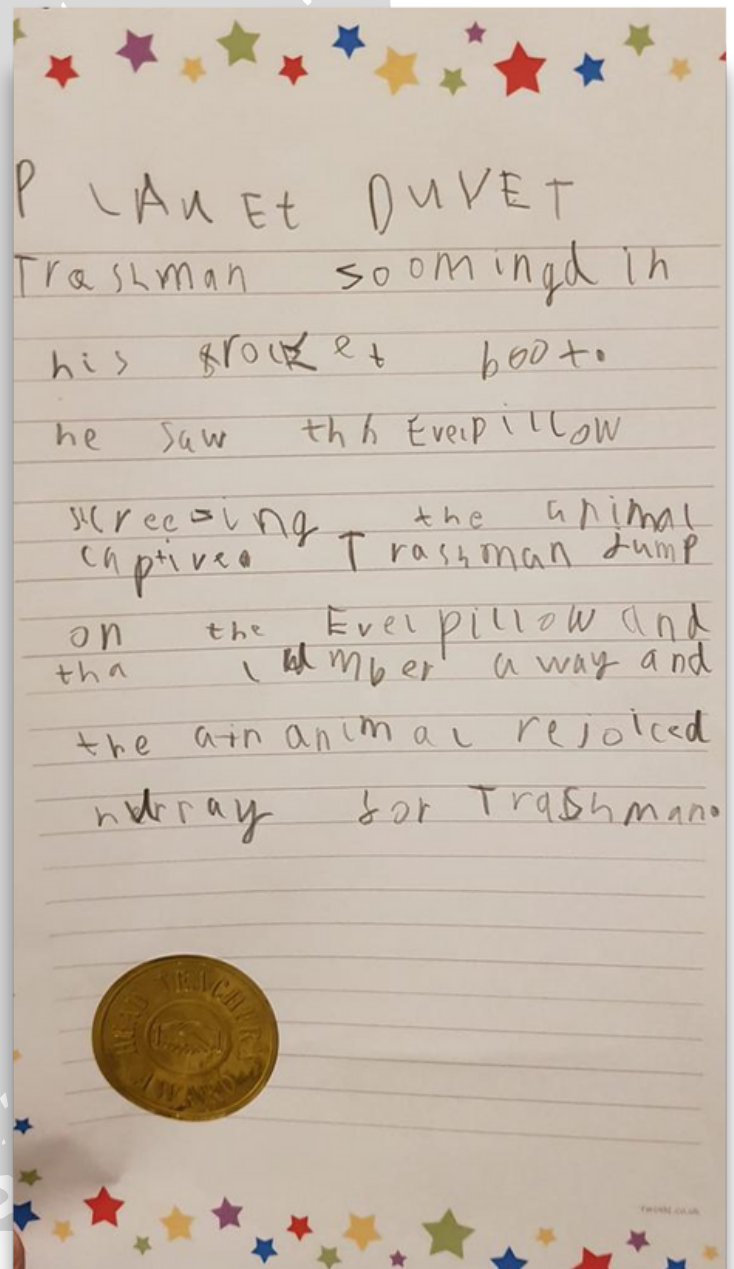 PLANEt DUVET
Trashman soomingd in
his srocket boot.
he saw thh Everpillow
the animal
captive. Trashman Jump
on the Everpillow and
tha lumber away and
the ain animal rejoiced
hurray for Trashman.
HEAD TEACHER'S
AWARD
twinkl.co.uk